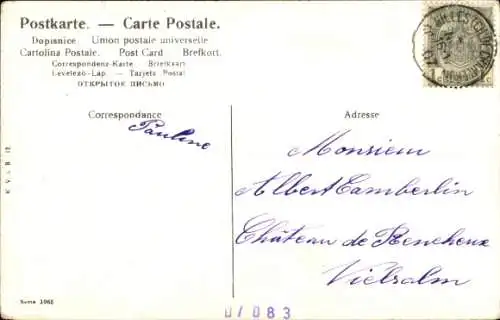 Postkarte. — Carte Postale.
Dopisnice Union postale universelle
Cartolina Postale. Post Card Brefkort.
Correspondenz-Karte Briefkaart
Levelező-Lap. — Tarjeta Postal
ОТКРЫТОЕ ПИСЬМО
Correspondance
Pauline
Adresse
Monsieur
Albert Camberlin
Château de Rencheux
Vielsalm
Serie 1961
07083